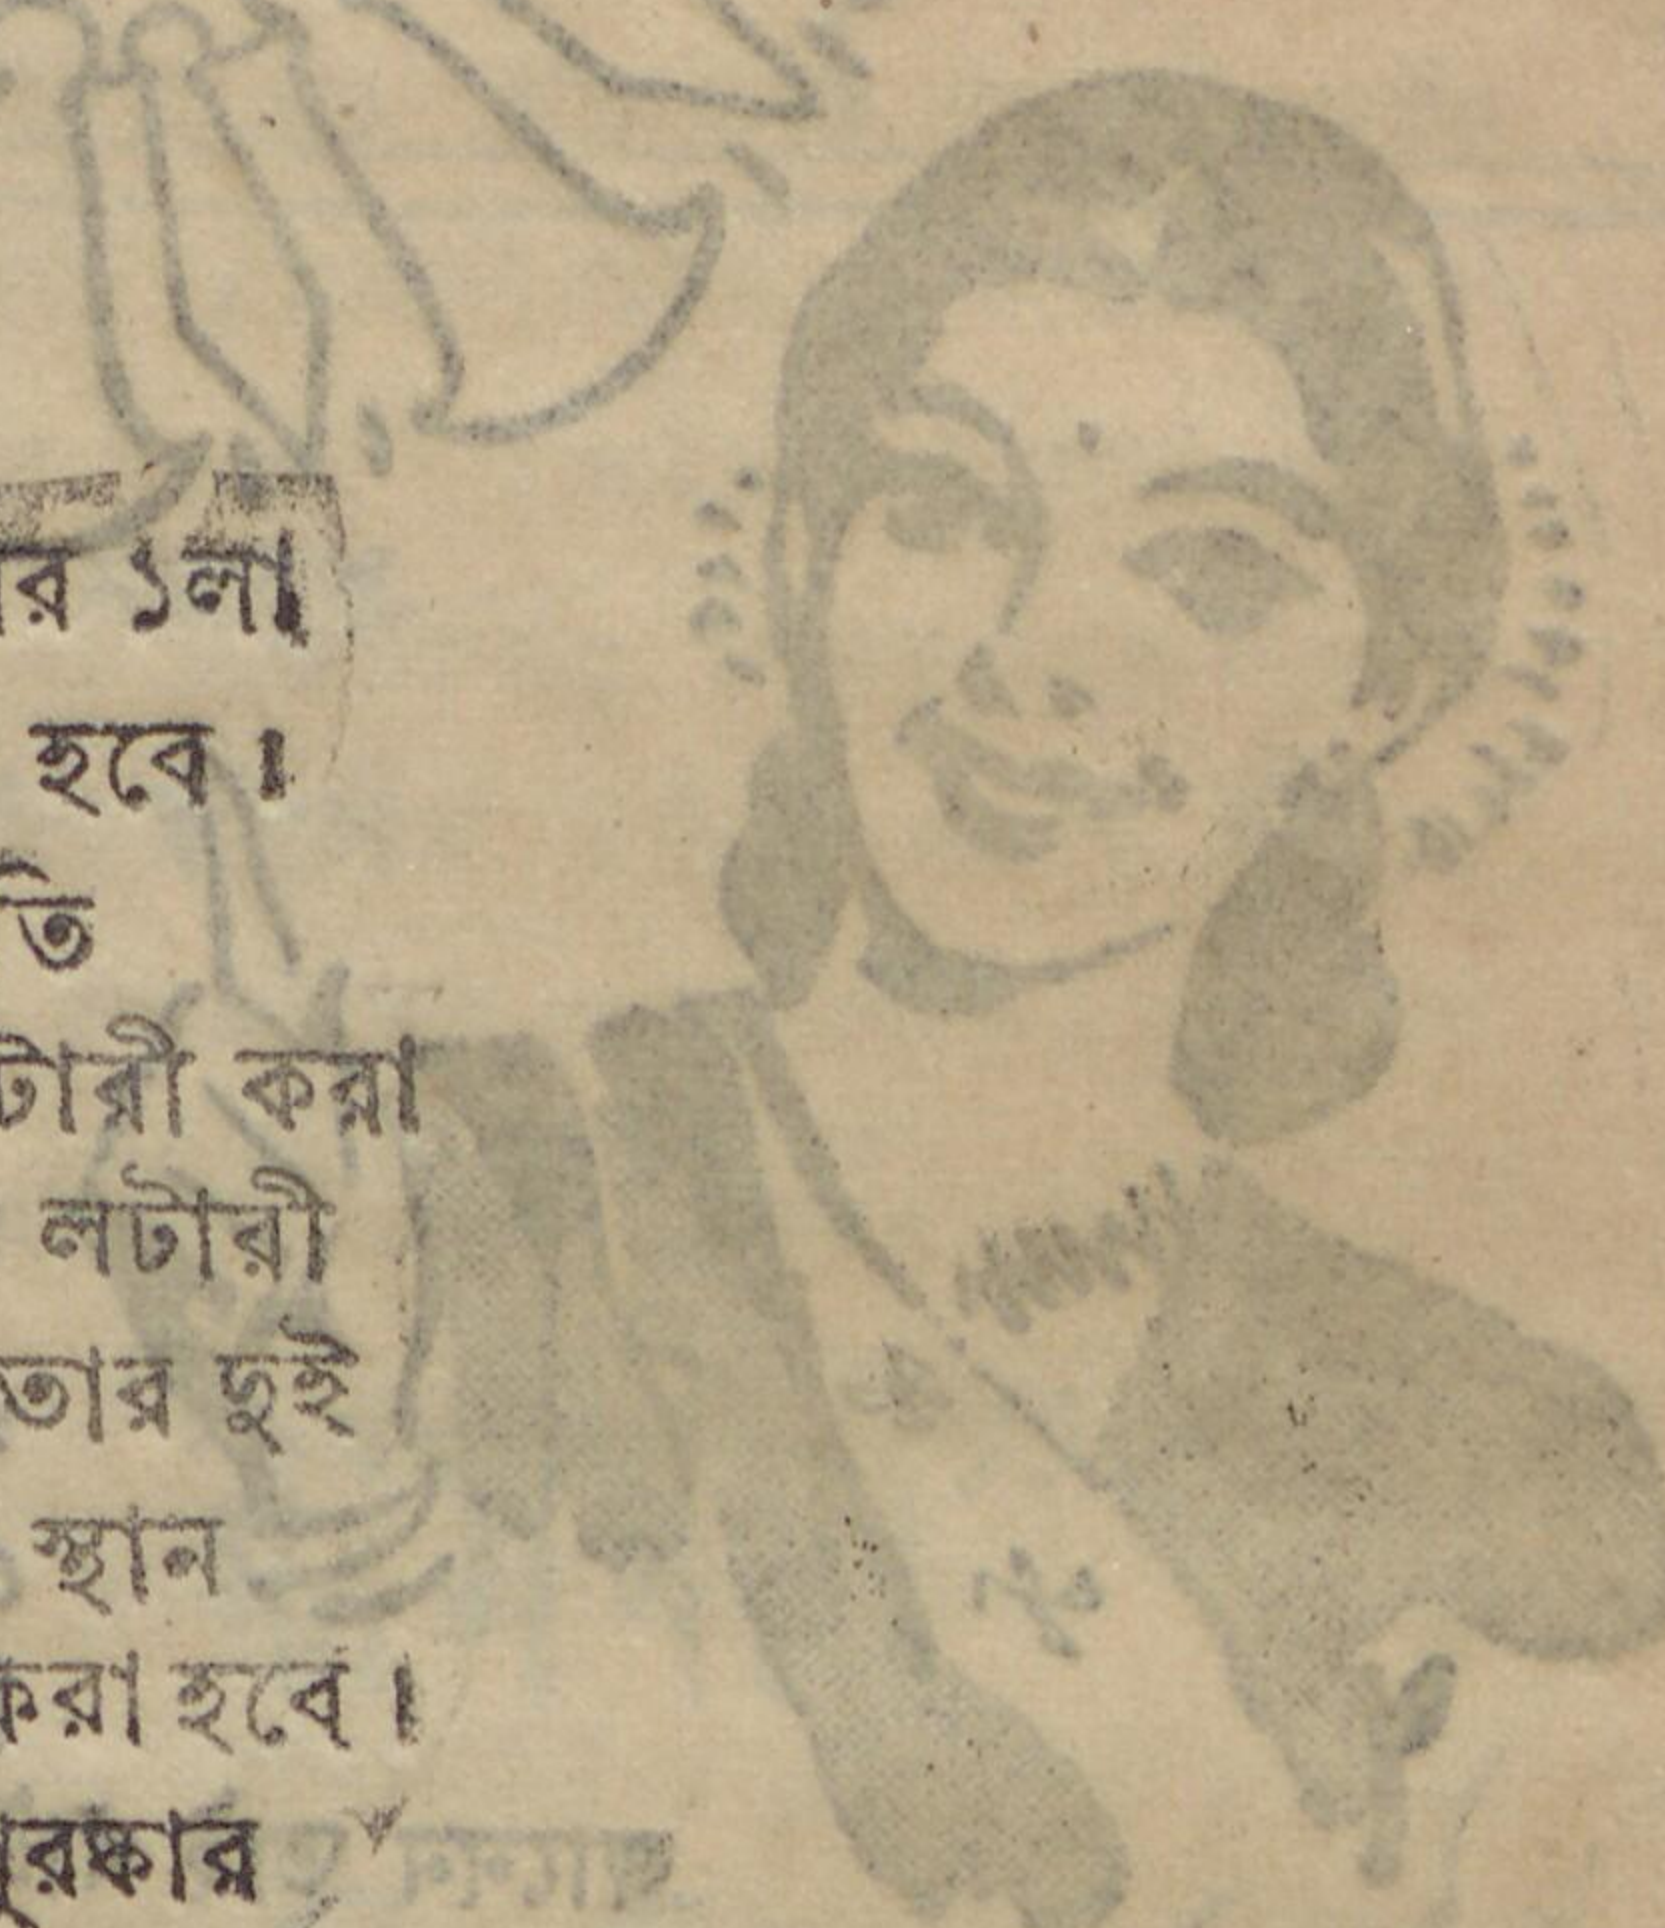 র ১লা
হবে।
তি
টারী করা
লটারী
তার দুই
স্থান
করা হবে।
পুরষ্কার